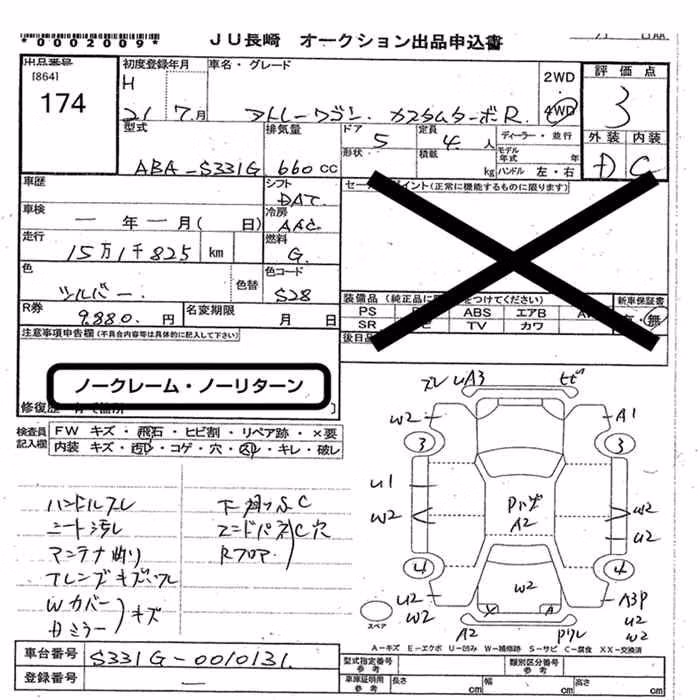 *0002009* JU長崎 オークション出品申込書
出品番号 初度登録年月 車名・グレード 2WD 評価点
[864] H 4WD
174 21 7月 アトレーワゴン. カスタムターボR. 3
型式 排気量 ドア 5 定員 4人 ディーラー・並行 外装 内装
ABA-S331G 660cc 形状 積載 kg モデル年式 年 D C
ハンドル 左・右
車歴 シフト DAT セールスポイント(正常に機能するものに限ります)
車検 ー年ー月( 日) 冷房 AAC
走行 15万1千825 km 燃料 G.
色 シルバー. 色替 色コード S28
R券 9,880.円 名変期限 月 日 装備品(純正品に をつけてください) 新車保証書
PS ABS エアB 有・無
SR TV カワ
注意事項申告欄(不具合内容等は具体的に記入して下さい) 後日品
ノークレーム・ノーリターン
修復歴
検査員記入欄 FW キズ・飛石・ヒビ割・リペア跡・×要
内装 キズ・汚レ・コゲ・穴・スレ・キレ・破レ
ズレ UA3 ヒビ
W2 A1
3 3
U1
W2 Pハゲ A2 W2
U2
4 4
W2
U2 A3P
W2 U2
W2
A2 Pワレ
スペア
ハンドルスレ 下廻りSC
シート汚レ エンドパネC穴
アンテナ曲り Rフロア
Fレンズキズ・ワレ
Wカバー
Dミラー キズ
A-キズ E-エクボ U-凹み W-補修跡 S-サビ C-腐食 XX-交換済
車台番号 S331G-0010131.
登録番号 ー
型式指定番号 類別区分番号
車庫証明用参考 長さ cm 幅 cm 高さ cm